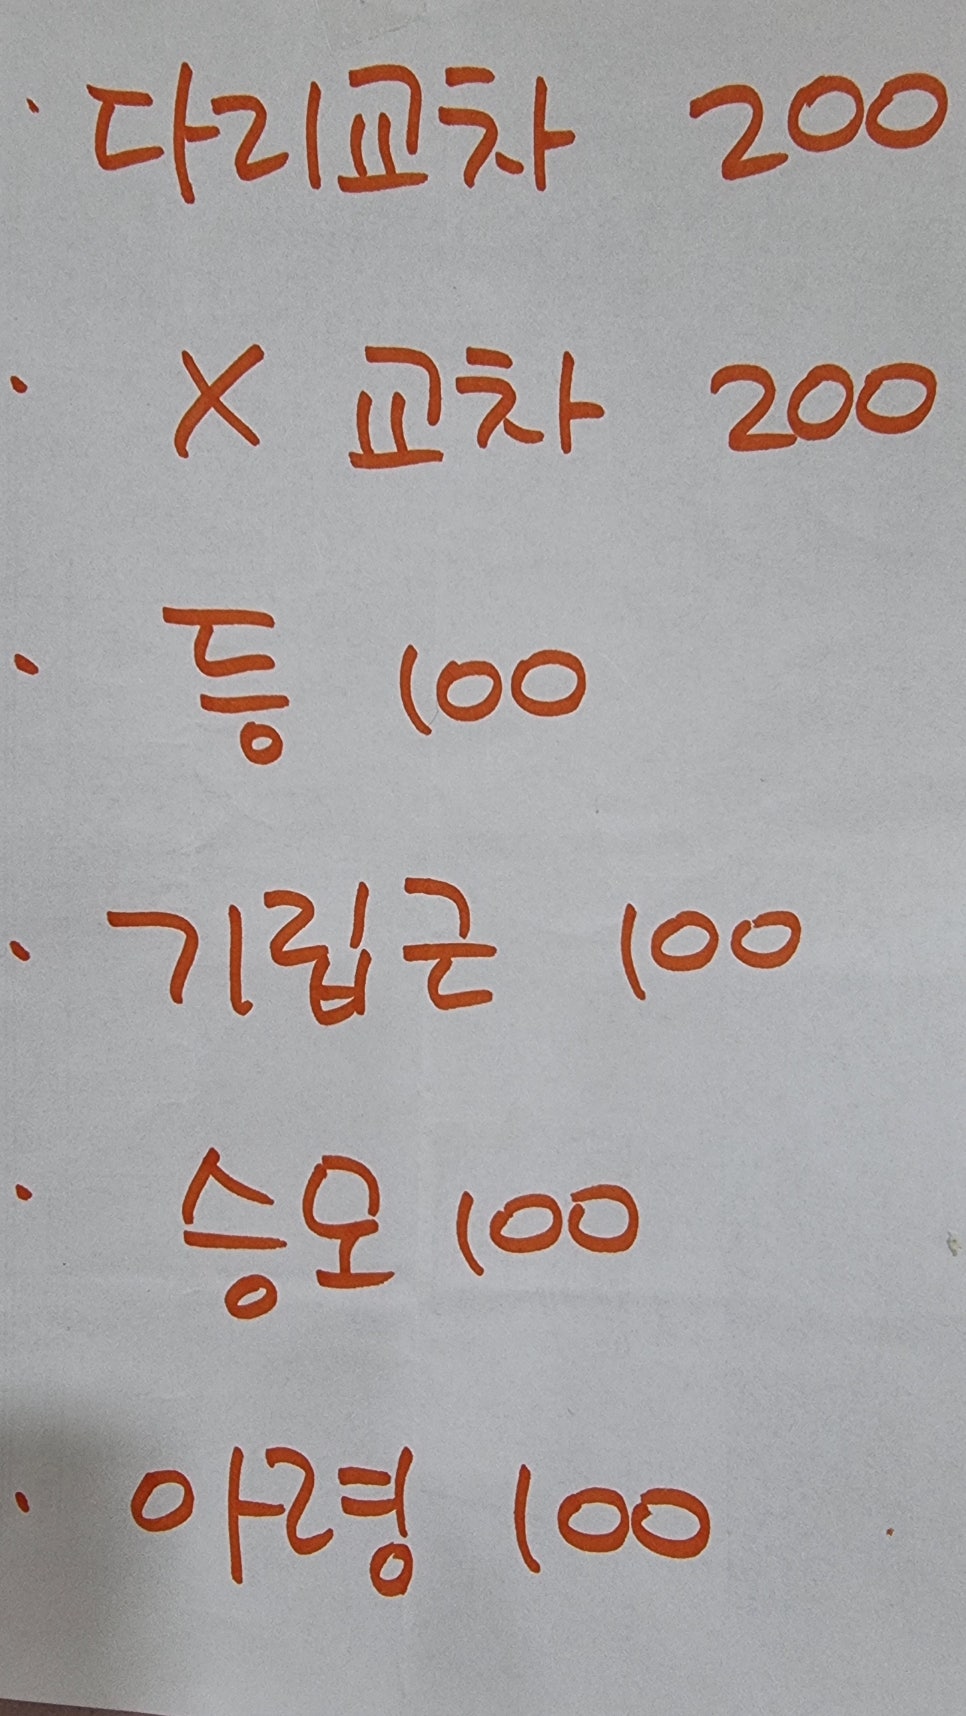 · 다리교차 200
· X 교차 200
· 등 100
· 기립근 100
· 승모 100
· 아령 100